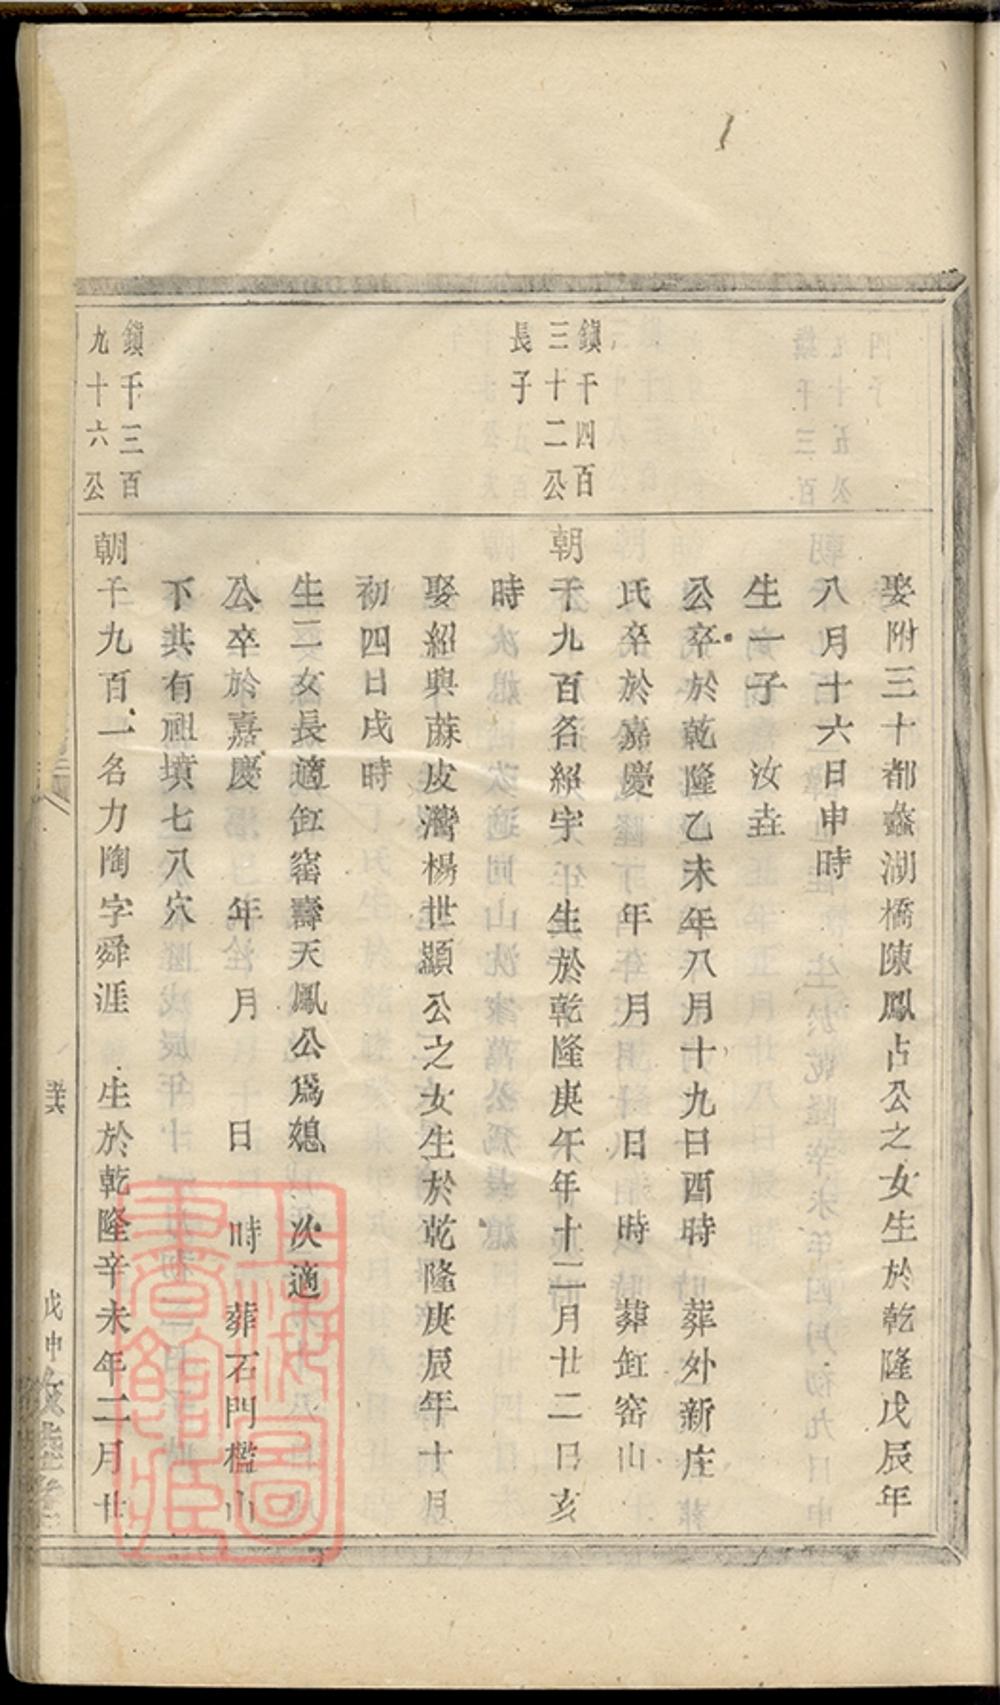 娶附三十都蠡湖橋陳鳳占公之女生於乾隆戊辰年
八月十六日申時
生一子　汝垚
公卒於乾隆乙未年八月十九日酉時　葬外新庄
氏卒於嘉慶　年　月　日　時　葬缸窑山
鎮千四百
三十二公
長子
朝千九百名紹宇　生於乾隆庚午年十二月廿二日亥
時
娶紹興蔴皮灣楊世顯公之女生於乾隆庚辰年十月
初四日戌時
生二女長適缸窰壽天鳳公爲媳　次適
公卒於嘉慶　年　月　日　時　葬石門檻山
下共有祖墳七八穴
鎮千三百
九十六公
朝千九百一名力陶字舜涯　生於乾隆辛未年二月廿
戊申
上海圖書館藏